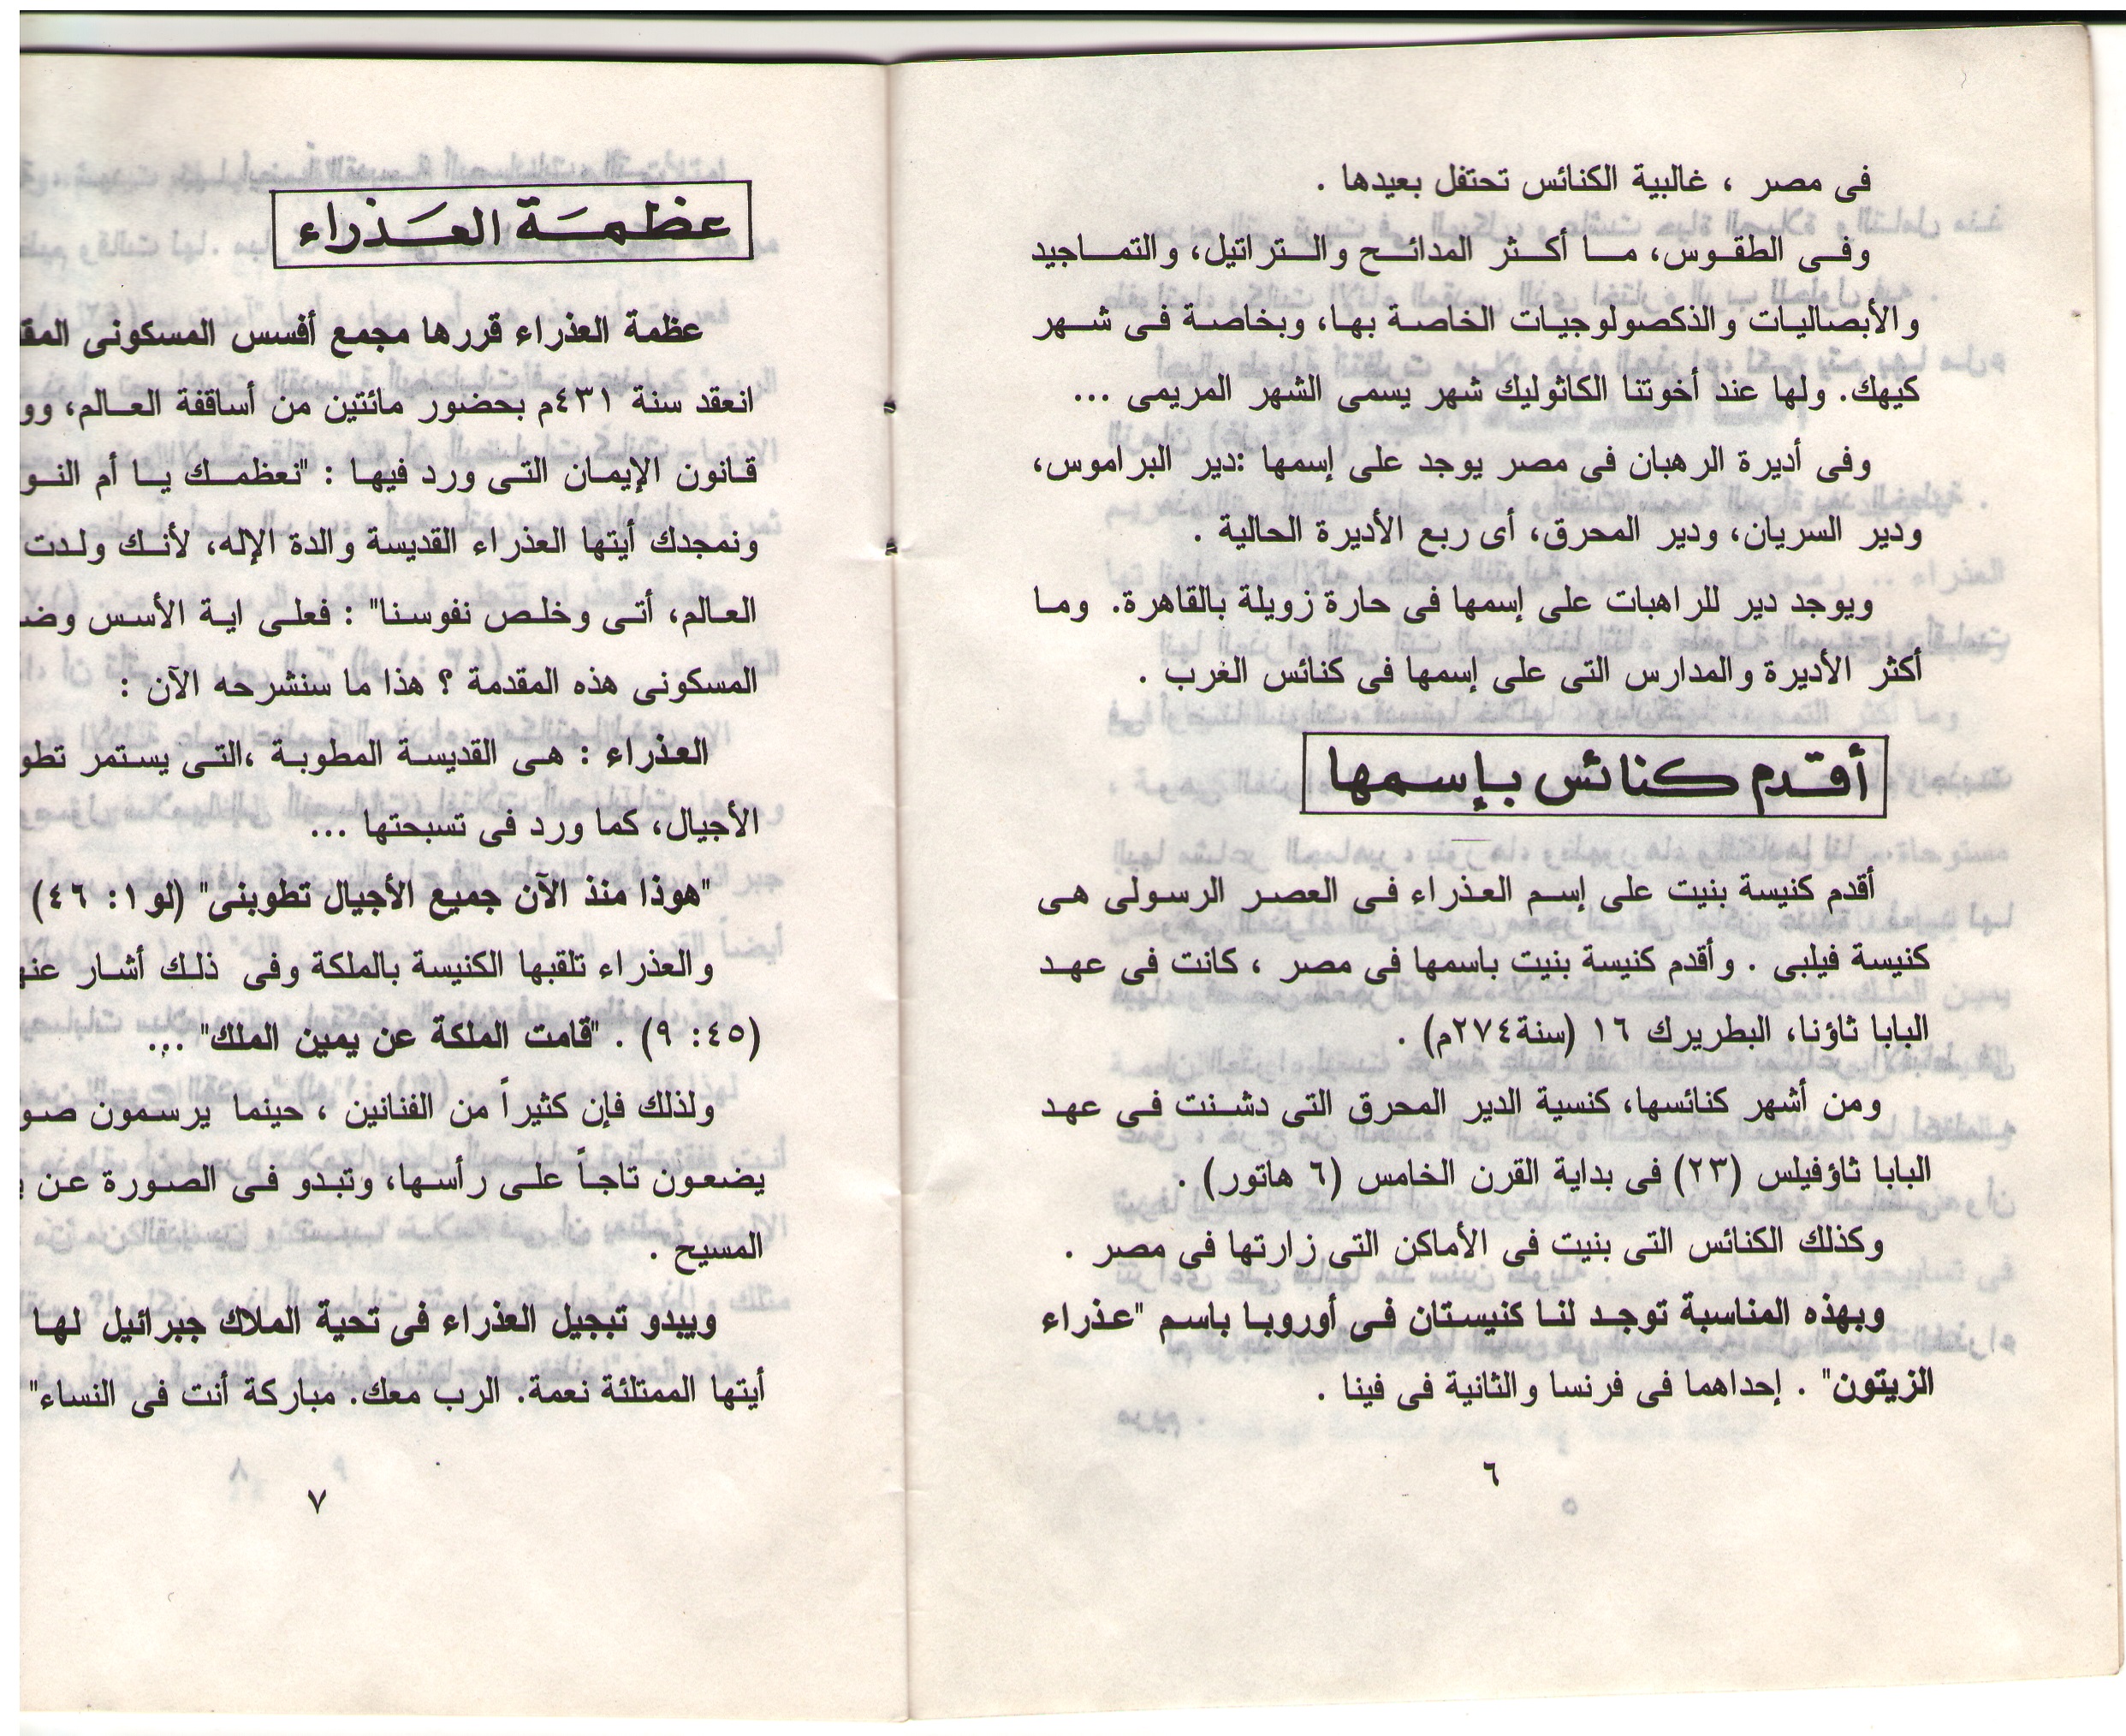 فى مصر ، غالبية الكنائس تحتفل بعيدها .
وفى الطقوس، ما أكثر المدائح والتراتيل، والتماجيد
والأبصاليات والذكصولوجيات الخاصة بها، وبخاصة فى شهر
كيهك. ولها عند أخوتنا الكاثوليك شهر يسمى الشهر المريمى ...
وفى أديرة الرهبان فى مصر يوجد على إسمها :دير البراموس،
ودير السريان، ودير المحرق، أى ربع الأديرة الحالية .
ويوجد دير للراهبات على إسمها فى حارة زويلة بالقاهرة. وما
أكثر الأديرة والمدارس التى على إسمها فى كنائس الغرب .
أقدم كنائس بإسمها
أقدم كنيسة بنيت على إسم العذراء فى العصر الرسولى هى
كنيسة فيلبى . وأقدم كنيسة بنيت باسمها فى مصر ، كانت فى عهد
البابا ثاؤنا، البطريرك ١٦ (سنة٢٧٤م) .
ومن أشهر كنائسها، كنسية الدير المحرق التى دشنت فى عهد
البابا ثاؤفيلس (٢٣) فى بداية القرن الخامس (٦ هاتور) .
وكذلك الكنائس التى بنيت فى الأماكن التى زارتها فى مصر .
وبهذه المناسبة توجد لنا كنيستان فى أوروبا باسم "عذراء
الزيتون" . إحداهما فى فرنسا والثانية فى فينا .
٦
عظمة العذراء
عظمة العذراء قررها مجمع أفسس المسكونى
انعقد سنة ٤٣١م بحضور مائتين من أساقفة العالم،
قانون الإيمان التى ورد فيها : "نعظمك يا أم
ونمجدك أيتها العذراء القديسة والدة الإله، لأنك ولدت
العالم، أتى وخلص نفوسنا" : فعلى اية الأسس
المسكونى هذه المقدمة ؟ هذا ما سنشرحه الآن :
العذراء : هى القديسة المطوبة ،التى يستمر
الأجيال، كما ورد فى تسبحتها ...
"هوذا منذ الآن جميع الأجيال تطوبنى" (لو١: ٤٦)
والعذراء تلقبها الكنيسة بالملكة وفى ذلك أشار
(٤٥: ٩) . "قامت الملكة عن يمين الملك" ...
ولذلك فإن كثيراً من الفنانين ، حينما يرسمون
يضعون تاجاً على رأسها، وتبدو فى الصورة عن
المسيح .
ويبدو تبجيل العذراء فى تحية الملاك جبرائيل لها
أيتها الممتلئة نعمة. الرب معك. مباركة أنت فى النساء"
٧